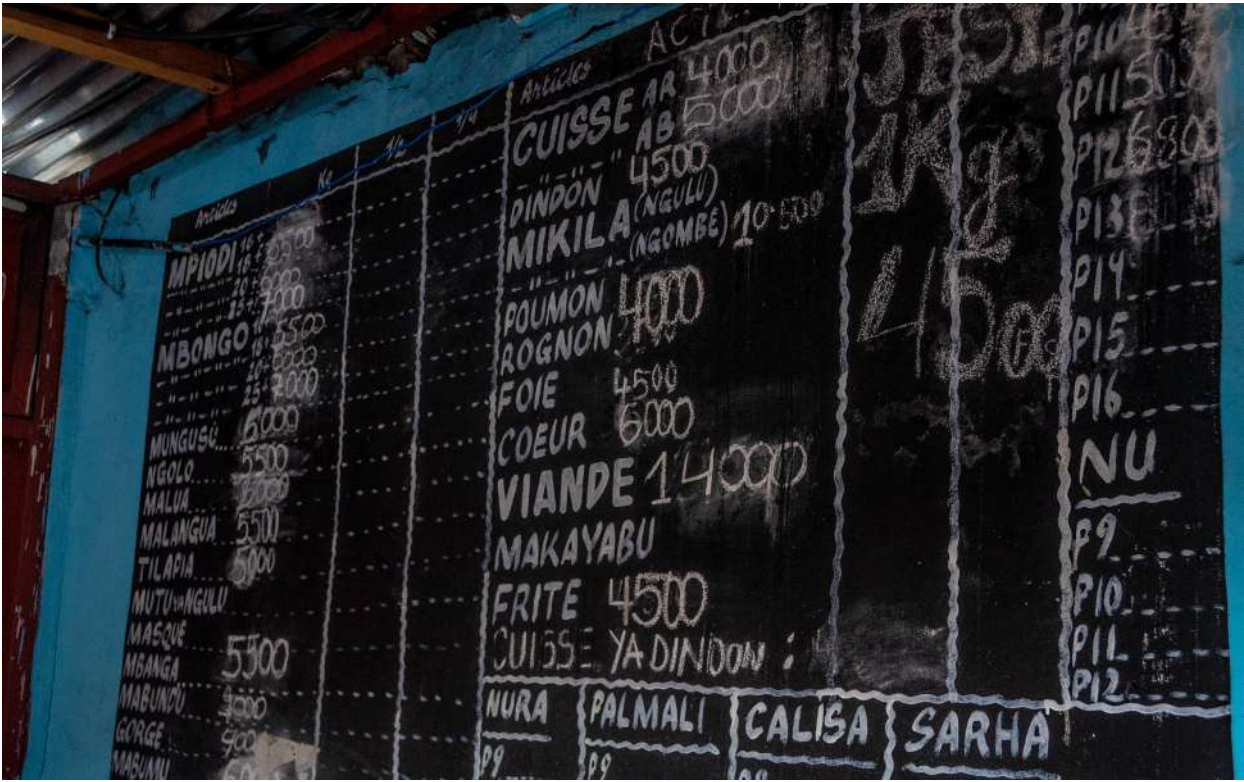 Articles Kg 1/2 1/4
MPIODI 16+
18+
20+
25+ 7000
MBONGO 16+ 5500
20+ 6000
25+ 7000
MUNGUSU 6000
NGOLO 5500
MALUA 6000
MALANGUA 5500
TILAPIA 5000
MUTU YA NGULU
MASQUE
MBANGA 5500
MABUNDU
GORGE 900
MABUMU
Articles
CUISSE AR 4000
-"-"-" AB 5000
DINDON 4500
MIKILA (NGULU)
-"-"-"- (NGOMBE) 10.500
POUMON 4000
ROGNON
FOIE 4500
COEUR 6000
VIANDE 14000
MAKAYABU
FRITE 4500
CUISSE YA DINDON :
1Kg
4500
P10
P11
P12 6800
P13
P14
P15
P16
NU
P9
P10
P11
P12
NURA PALMALI CALISA SARHA
P9 P9